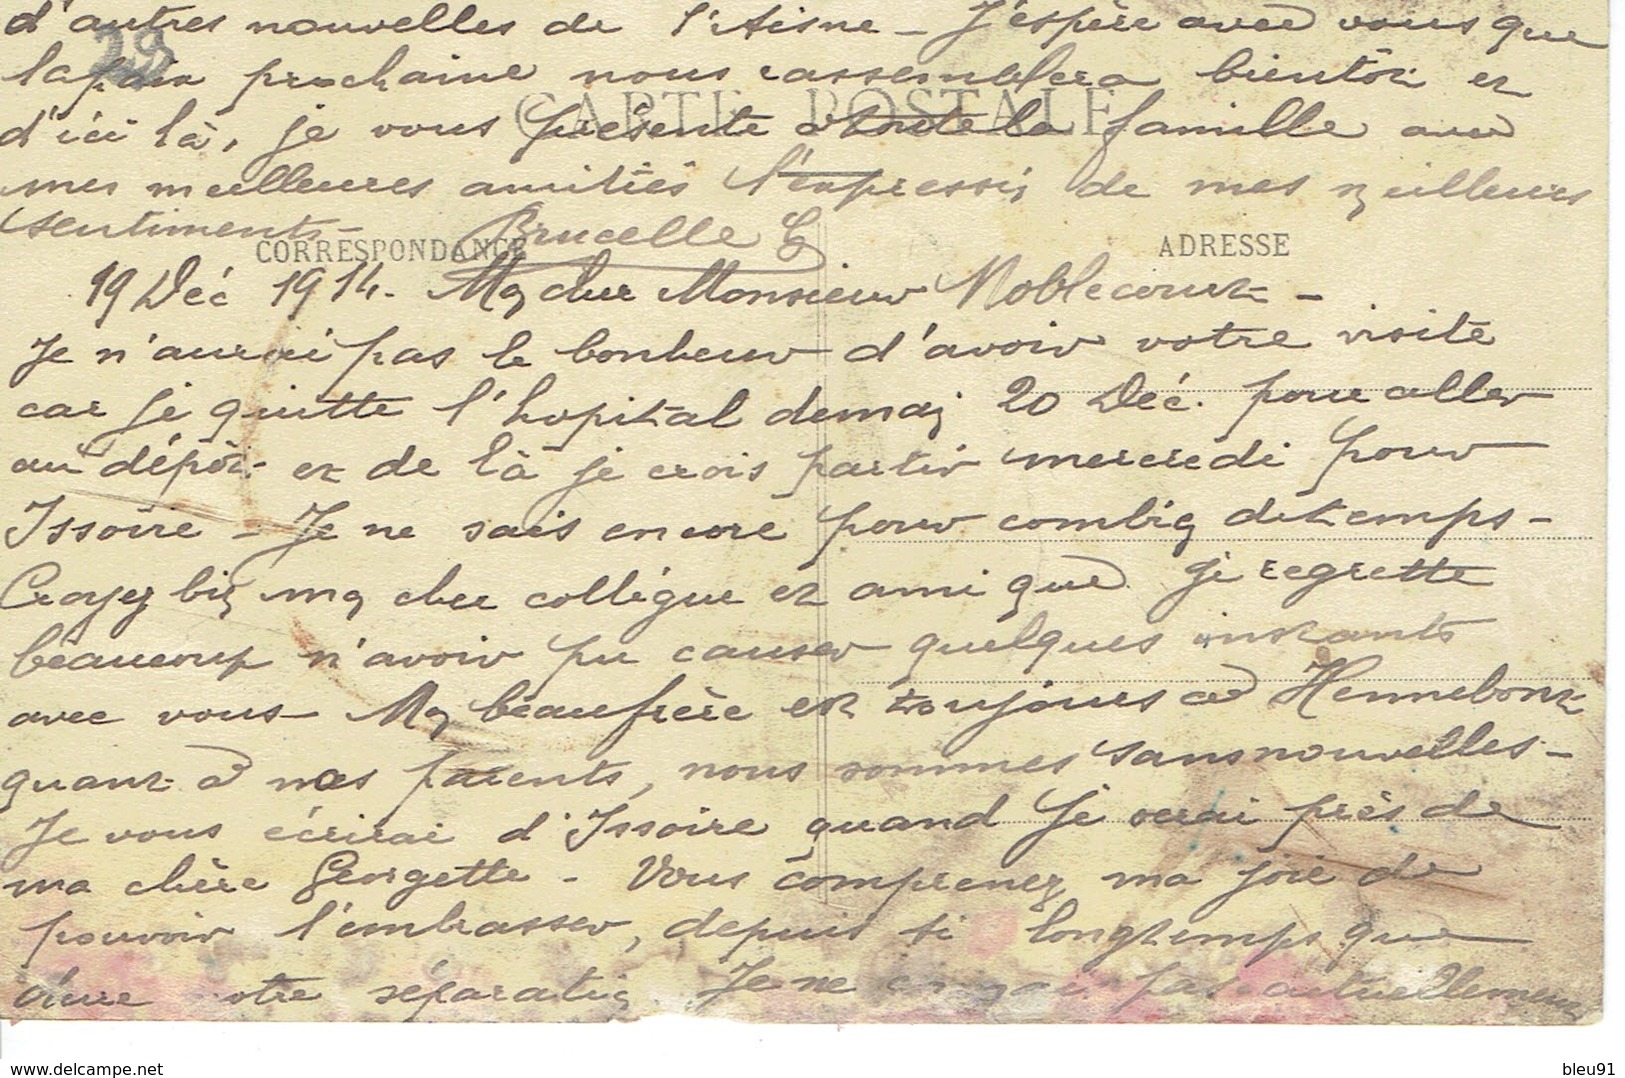 d'autres nouvelles de l'Aisne - J'espère avec vous que
la paix prochaine nous rassemblera bientôt et
29
CARTE POSTALE
d'ici là, je vous présente à toute la famille avec
mes meilleures amitiés l'expression de mes meilleurs
sentiments - Brucelle G
CORRESPONDANCE
ADRESSE
19 Déc 1914. Mon cher Monsieur Noblecourt -
Je n'aurai pas le bonheur d'avoir votre visite
car je quitte l'hopital demain 20 Déc. pour aller
au dépôt et de là je crois partir mercredi pour
Issoire - Je ne sais encore pour combien de temps -
Croyez bien mon cher collègue et ami que je regrette
beaucoup n'avoir pu causer quelques instants
avec vous - Mon beaufrère est toujours à Hennebont
quant à nos parents, nous sommes sans nouvelles -
Je vous écrirai d'Issoire quand je serai près de
ma chère Georgette - Vous comprenez ma joie de
pouvoir l'embrasser, depuis si longtemps que
dure notre séparation Je ne pas actuellement
bleu91